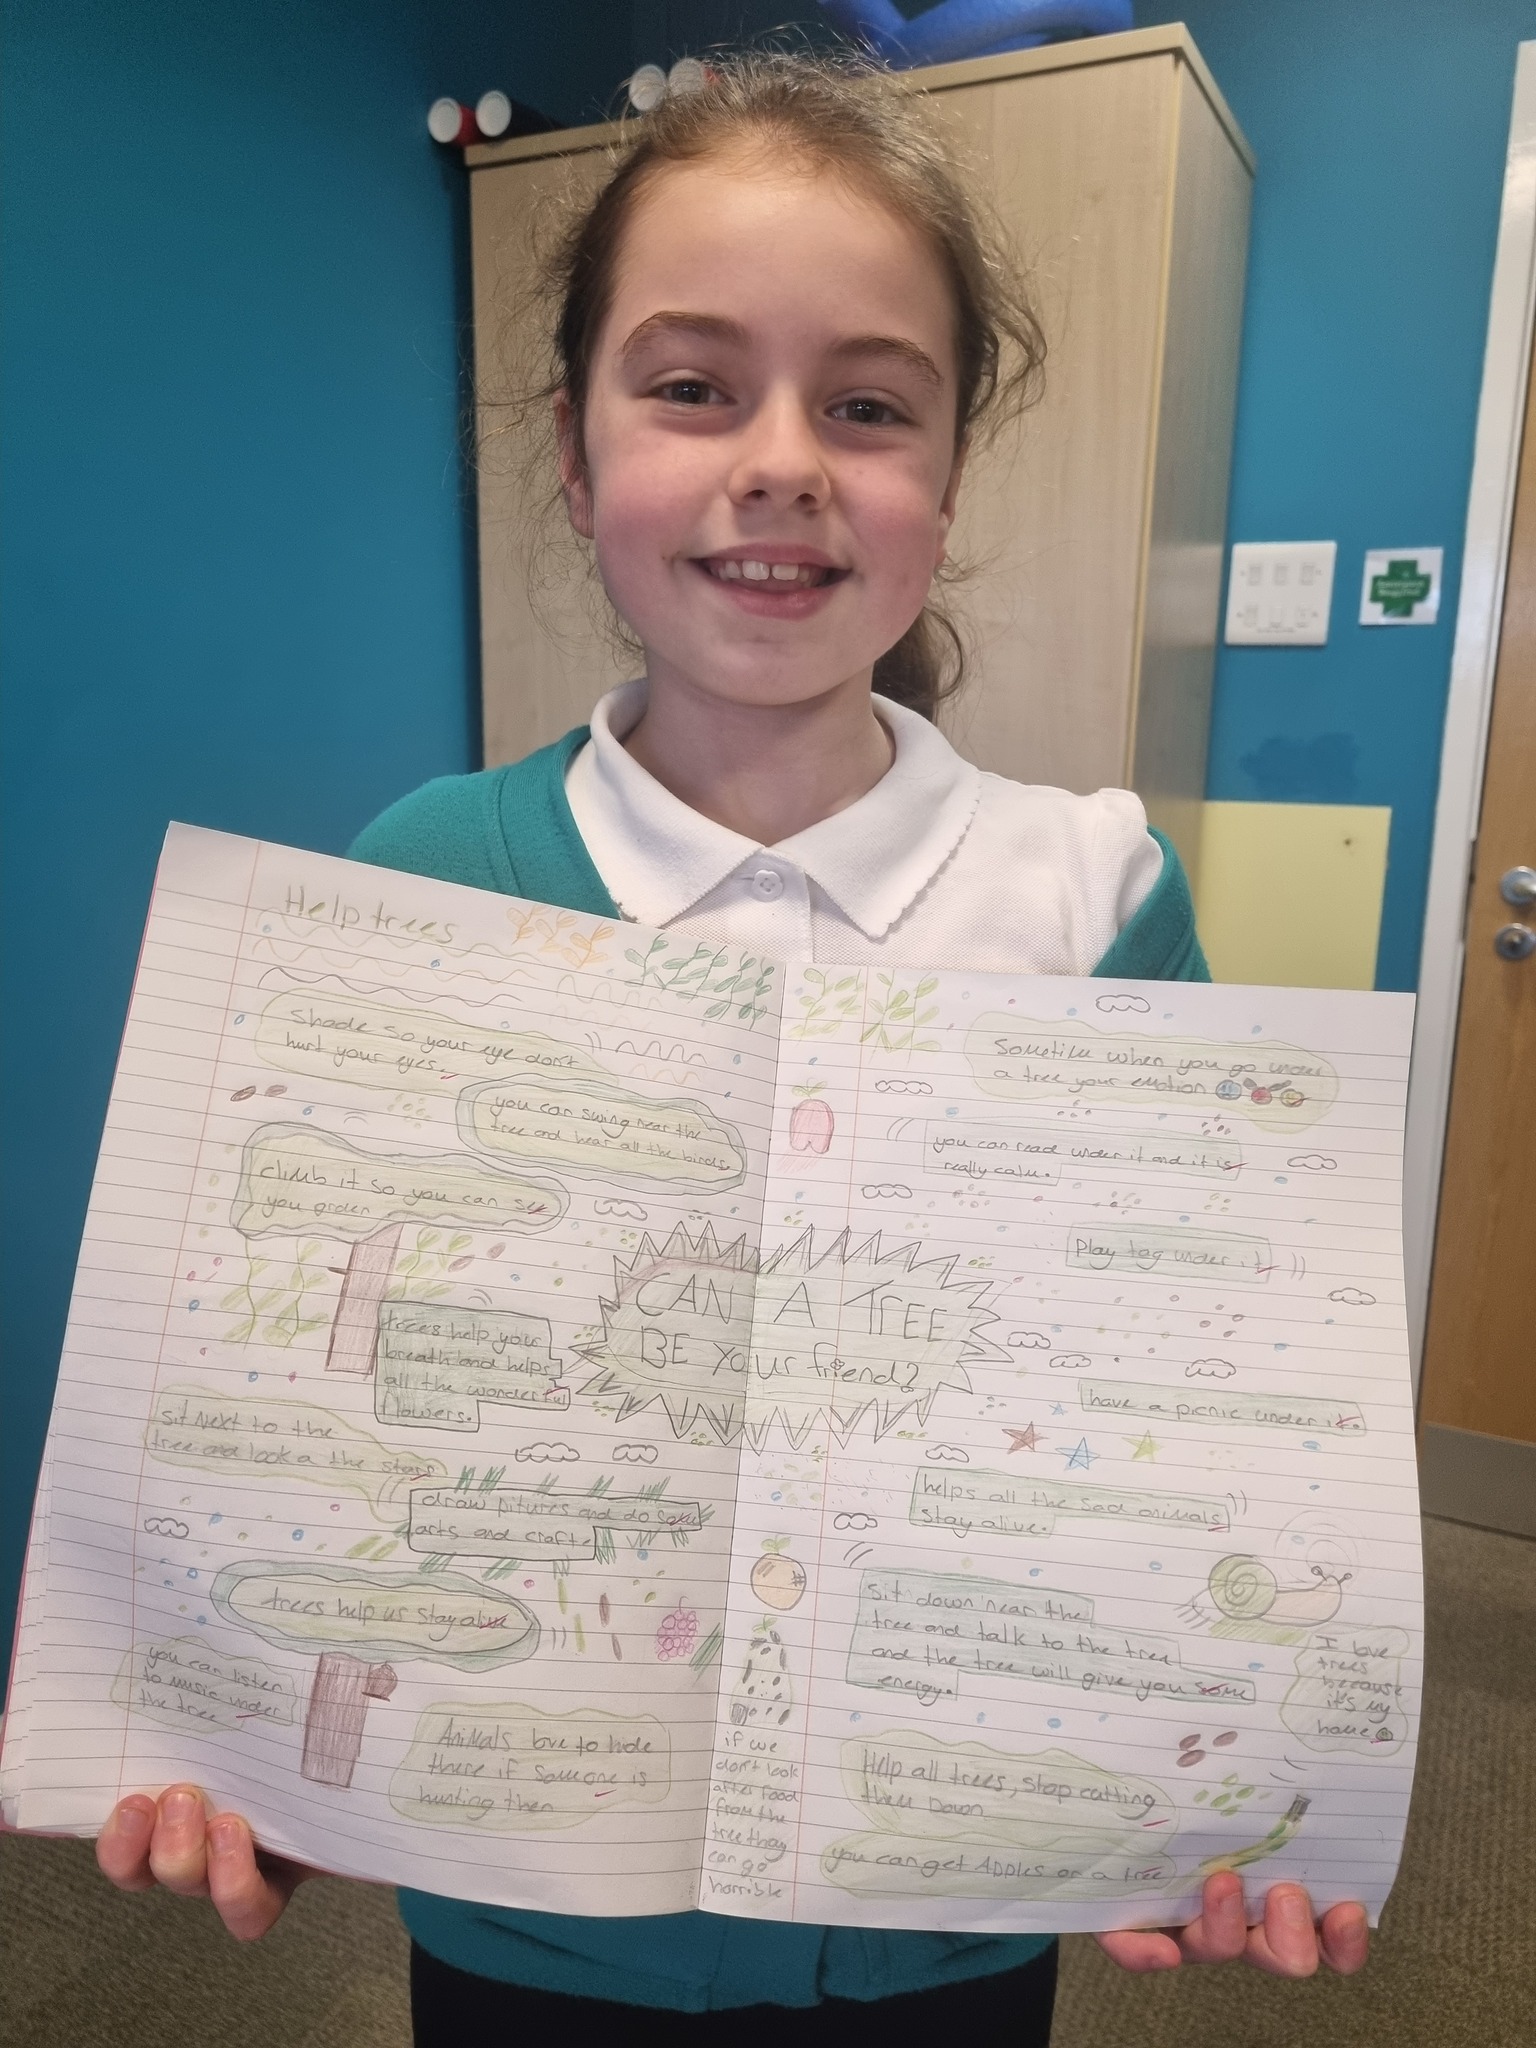 Help trees
shade so your eye don't
hurt your eyes.
you can swing near the
tree and hear all the birds.
climb it so you can see
you graden
trees help your
breath and helps
all the wonderful
flowers.
sit next to the
tree and look a the stars
draw pitures and do some
arts and crafts
trees help us stay alive
you can listen
to music under
the tree
Animals love to hide
there if someone is
hunting then
CAN A TREE
BE your friend?
if we
don't look
after food
from the
tree thay
can go
horrible
Sometime when you go under
a tree your emotion
you can read under it and it is
really calm.
Play tag under it
have a picnic under it.
helps all the sad animals
stay alive.
sit down near the
tree and talk to the tree
and the tree will give you some
energy.
I love
trees
because
it's my
home
Help all trees, stop cutting
them down
you can get Apples or a tree